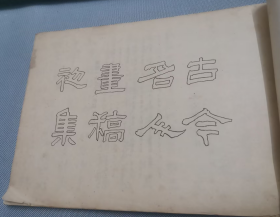 古今
名人
畫稿
初集